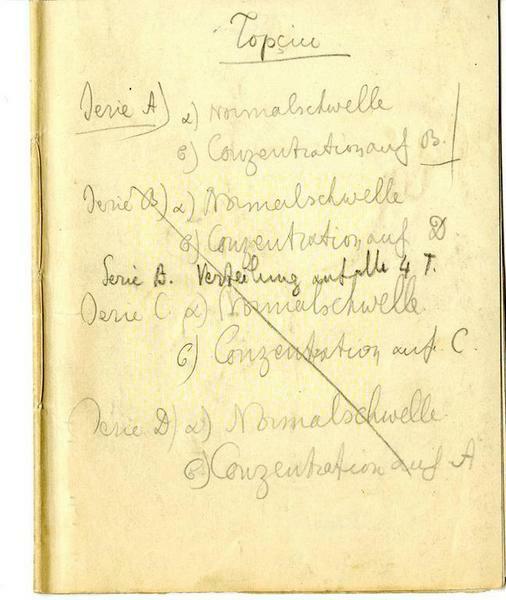 Topçiu
Serie A) α) Normalschwelle
β) Conzentration auf B.
Serie B) α) Normalschwelle
β) Conzentration auf D
Serie B. Verteilung auf alle 4 T.
Serie C α) Normalschwelle
β) Conzentration auf C.
Serie D) α) Normalschwelle
β) Conzentration auf A